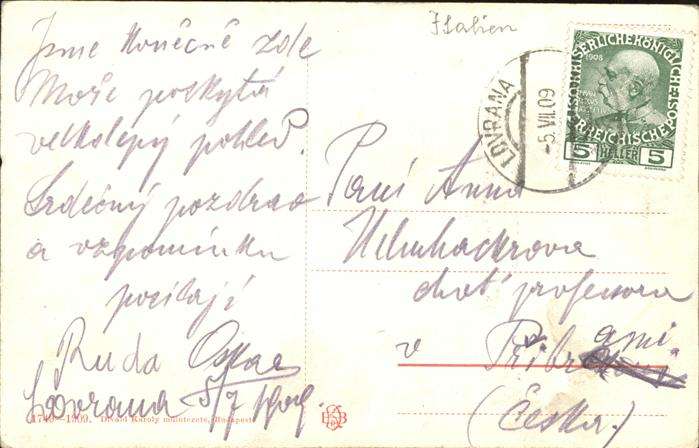 Jsme konečně zde
Moře poskytá
velkolepý pohled.
Srdečný pozdrav
a vzpomínku
posílají
Ruda Oskar
Lovrana 5/7 1909
1740-1909. Divald Károly műintézete, Budapest
Italien
LOVRANA
-5.VII.09
KAISERLICHE KÖNIGLICHE
ÖSTERREICHISCHE POST
1908
5 HELLER 5
Paní Anna
choť professora
v Příbrami
(Česka.)